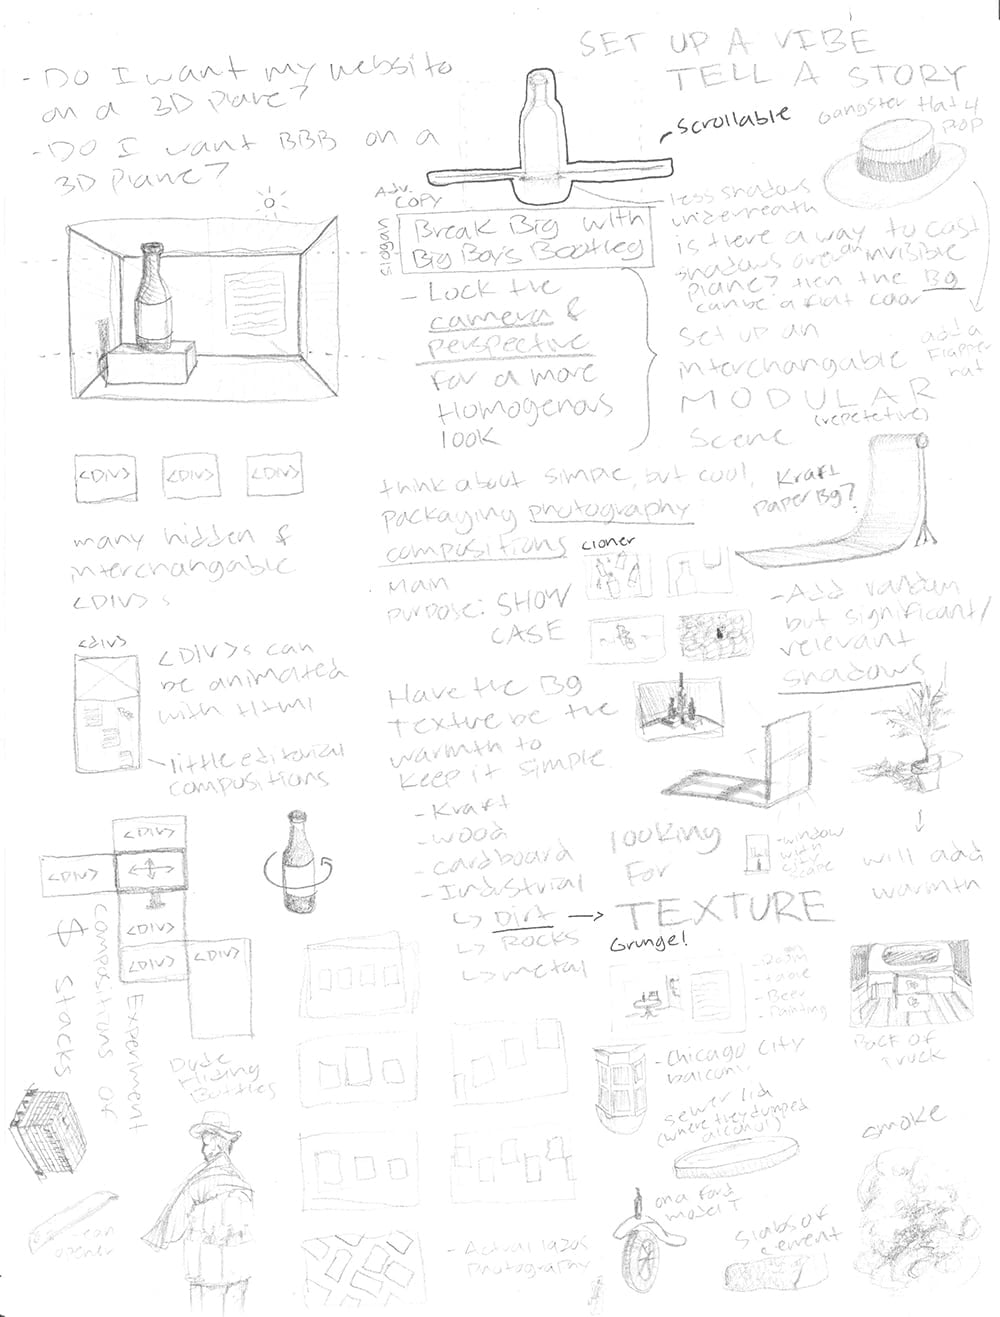 SET UP A VIBE
TELL A STORY
- Do I want my website
on a 3D Plane?
- Do I want BBB on a
3D Plane?
scrollable
Gangster Hat 4
Pop
Adv.
COPY
slogan
Break Big with
Big Boy's Bootleg
less shadows
underneath
is there a way to cast
shadows over an invisible
plane? then the Bg
can be a flat color
- Lock the
camera &
perspective
for a more
Homogenous
look
set up an
interchangable
MODULAR
(repetetive)
Scene
add a
Flapper
hat
<DIV> <DIV> <DIV>
many hidden &
interchangable
<DIV>s
think about simple, but cool,
packaging photography
compositions
cloner
main
purpose: SHOW
CASE
Kraft
Paper Bg?
- Add random
but significant/
relevant
shadows
<div>
<DIV>s can
be animated
with Html
little editorial
compositions
Have the BG
Texture be the
warmth to
keep it simple.
- Kraft
- wood
- cardboard
- Industrial
↳ Dirt →
↳ ROCKS
↳ metal
looking
For
TEXTURE
Grunge!
- window
with
city
scape
will add
warmth
<DIV>
<DIV>
<DIV>
<DIV> <DIV>
Experiment
compositons of
$ stacks
- Room
- table
- Beer
- Painting
Back of
truck
Dude
Hiding
Bottles
- Chicago City
balcony
sewer lid
(where they dumped
alcohol)
smoke
on a Ford
model T
Slabs of
cement
can
opener
- Actual
photography